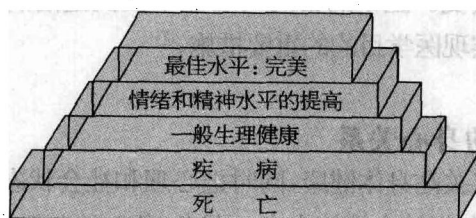 最佳水平:完美
情绪和精神水平的提高
一般生理健康
疾 病
死 亡